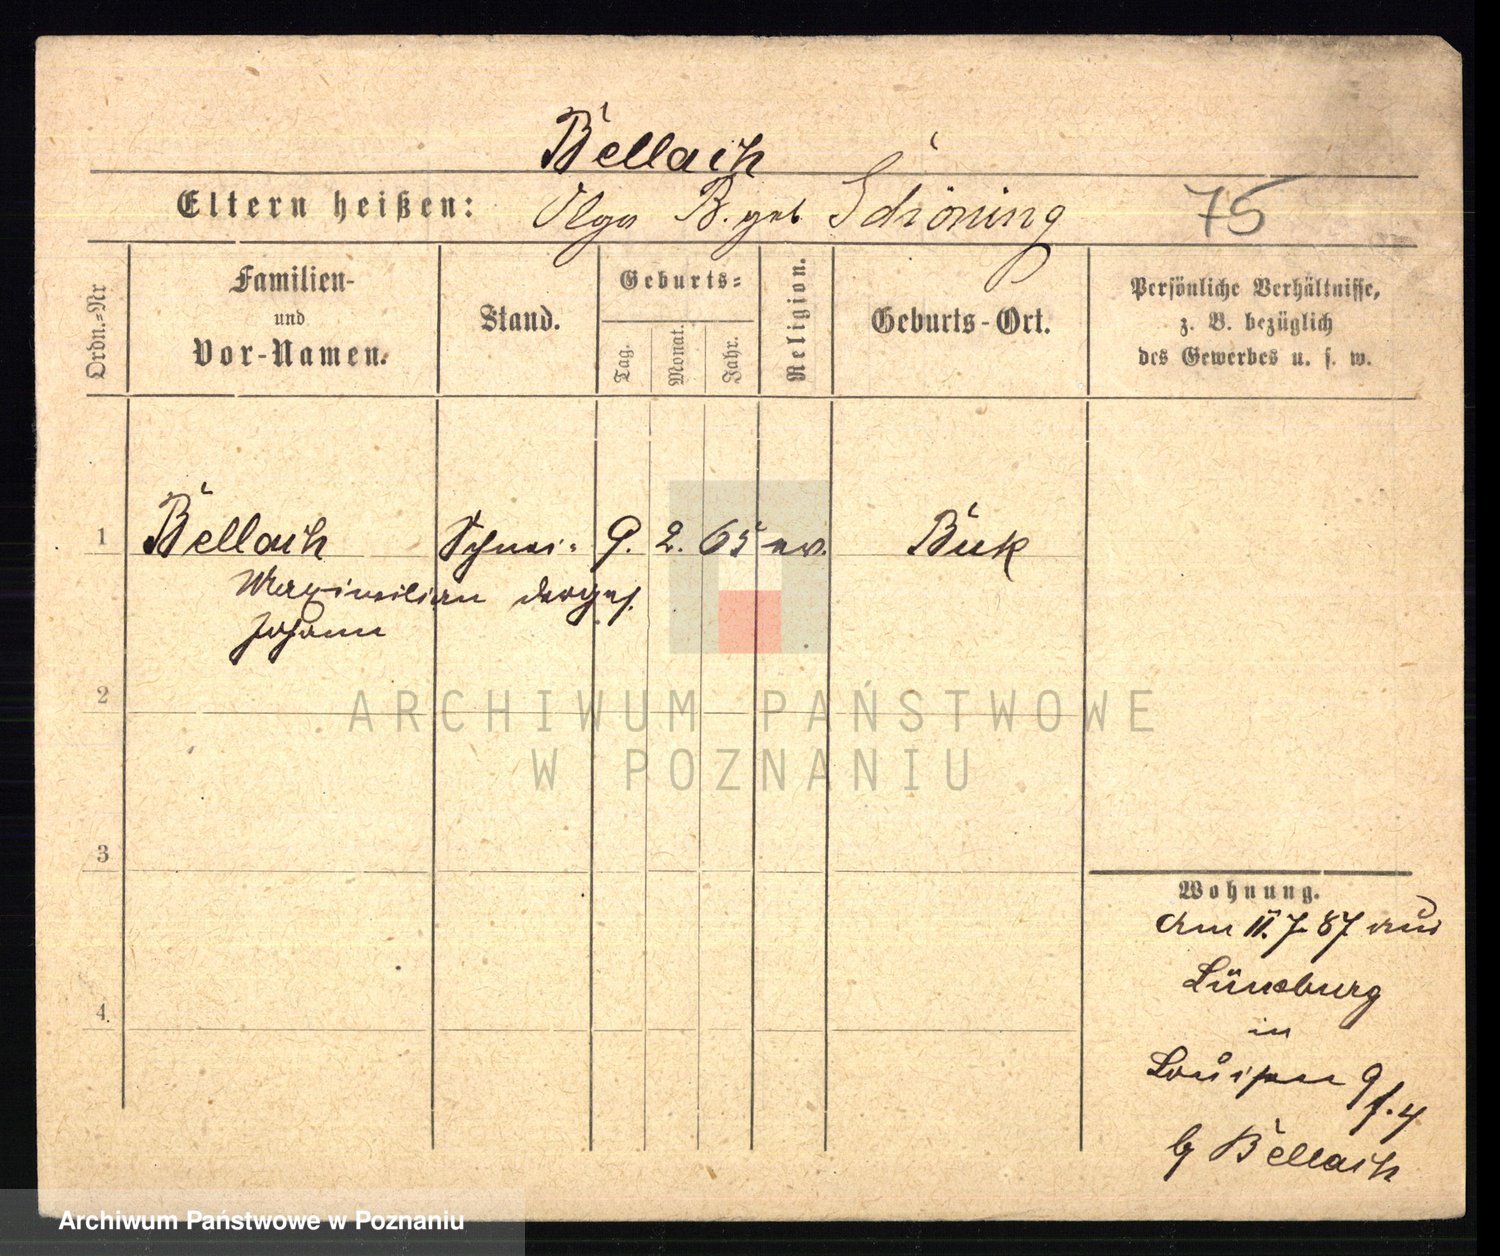 Bellach
Eltern heißen: Olga B. geb Schöning 75
Ordn.-Nr
Familien-
und
Vor-Namen.
Stand.
Geburts-
Tag.
Monat.
Jahr.
Religion.
Geburts-Ort.
Persönliche Verhältnisse,
z. B. bezüglich
des Gewerbes u. s. w.
1 Bellach Schnei- 9. 2. 65 ev. Buk
Maximilian derges.
Johann
2
ARCHIWUM PAŃSTWOWE
W POZNANIU
3
Wohnung.
Am 11.7.87 aus
Lüneburg
4
in
Louisen 9
b Bellach
Archiwum Państwowe w Poznaniu